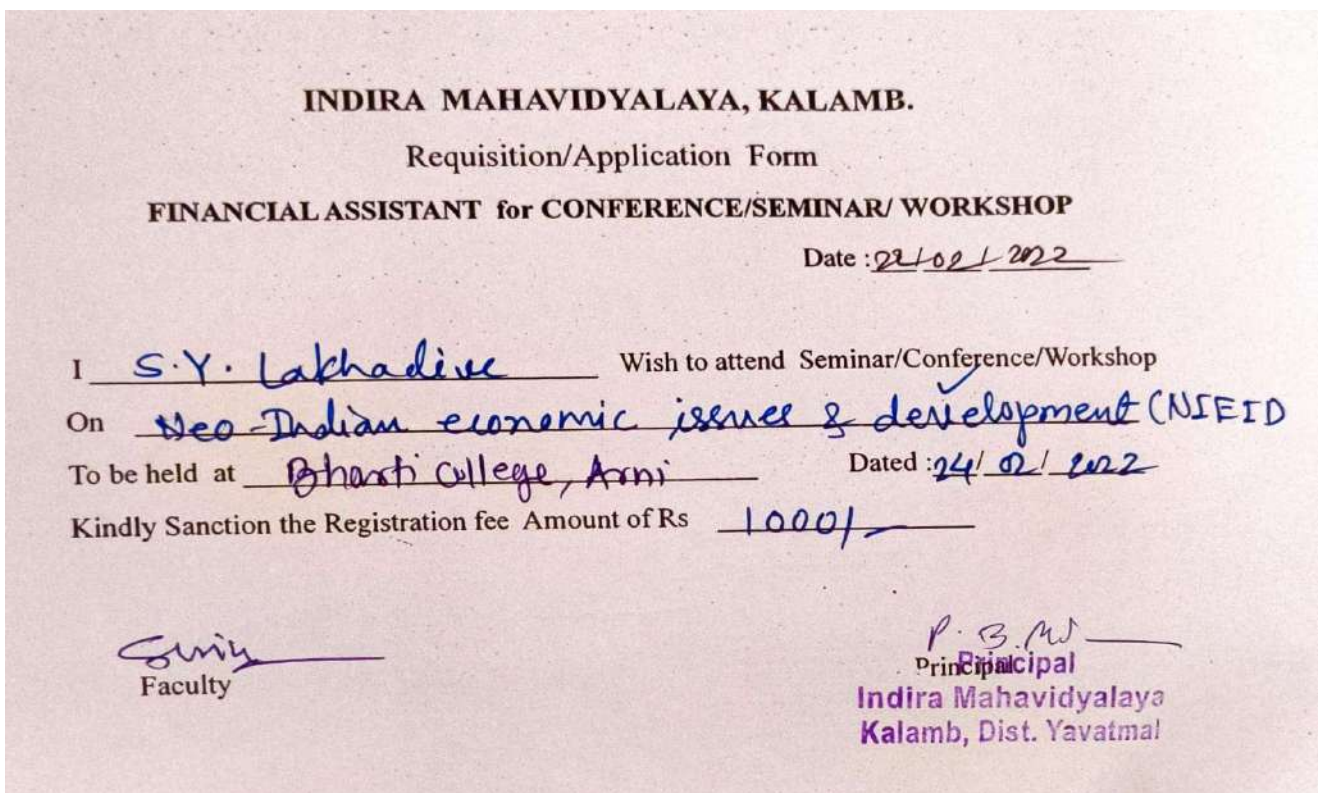 INDIRA MAHAVIDYALAYA, KALAMB.
Requisition/Application Form
FINANCIAL ASSISTANT for CONFERENCE/SEMINAR/ WORKSHOP
Date : 22/02/2022
I S.Y. Lakhadive Wish to attend Seminar/Conference/Workshop
On Neo-Indian economic issues & development (NIEID
To be held at Bharti College, Arni Dated : 24/ 02/ 2022
Kindly Sanction the Registration fee Amount of Rs 1000/-
P. B.
Faculty Principal
Principal
Indira Mahavidyalaya
Kalamb, Dist. Yavatmal